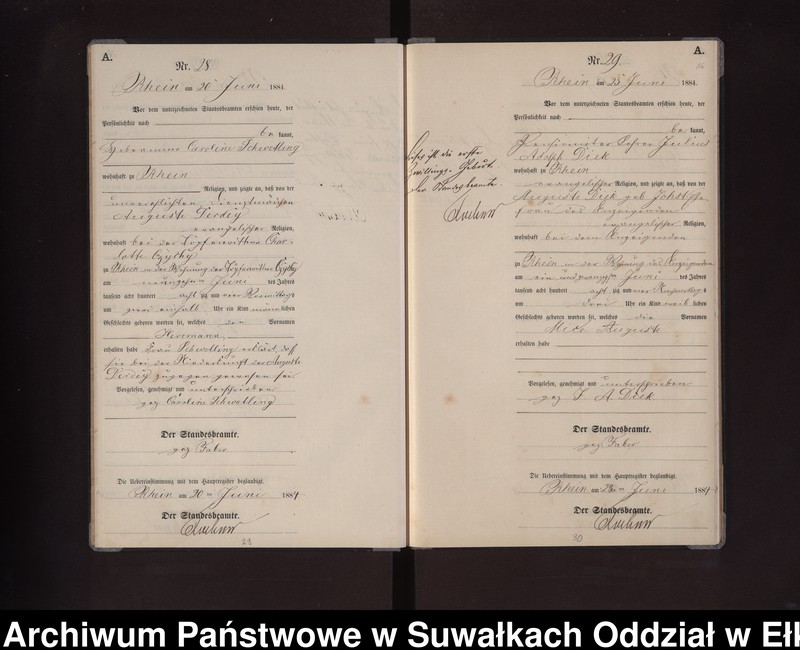 A.
Nr. 28.
Rhein am 20 Juni 1884.
Vor dem unterzeichneten Standesbeamten erschien heute, der
Persönlichkeit nach
be kannt,
Hebeamme Caroline Schwelling
wohnhaft zu Rhein
Religion, und zeigte an, daß von der
unverehelichten Dienstmädchen
Auguste
evangelischer Religion,
wohnhaft bei der Töpferwittwe Char-
lotte Czychy
zu Rhein in der Wohnung der Töpferwittwe Czychy
am neunzehn Juni des Jahres
tausend acht hundert acht zig und vier Vormittags
um zwei einhalb Uhr ein Kind männ lichen
Geschlechts geboren worden sei, welches den Vornamen
Herrmann
erhalten habe Frau Schwelling erklärt, daß
sie bei der Niederkunft der Auguste
zugegen gewesen sei
Vorgelesen, genehmigt und unterschrieben
gez Caroline Schwelling
Der Standesbeamte.
gez Faber
Die Uebereinstimmung mit dem Hauptregister beglaubigt.
Rhein am 20 ten Juni 1884
Der Standesbeamte.
29
A.
Nr. 29.
Rhein am 23 Juni 1884.
Vor dem unterzeichneten Standesbeamten erschien heute, der
Persönlichkeit nach
be kannt,
Lehrer Julius
Adolph Dick
wohnhaft zu Rhein
evangelischer Religion, und zeigte an, daß von der
Auguste Dick geb
Frau des Anzeigenden
evangelischer Religion,
wohnhaft bei dem Anzeigenden
zu Rhein in der Wohnung des Anzeigenden
am ein und zwanzigsten Juni des Jahres
tausend acht hundert acht zig und vier Nachmittags
um drei Uhr ein Kind weib lichen
Geschlechts geboren worden sei, welches die Vornamen
Auguste
erhalten habe
Vorgelesen, genehmigt und unterschrieben
gez J. A. Dick
Der Standesbeamte.
gez Faber
Die Uebereinstimmung mit dem Hauptregister beglaubigt.
Rhein am ten Juni 1884
Der Standesbeamte.
30
Dieses ist die erste
Zwillings Geburt
Der Standesbeamte
Archiwum Państwowe w Suwałkach Oddział w Ełk